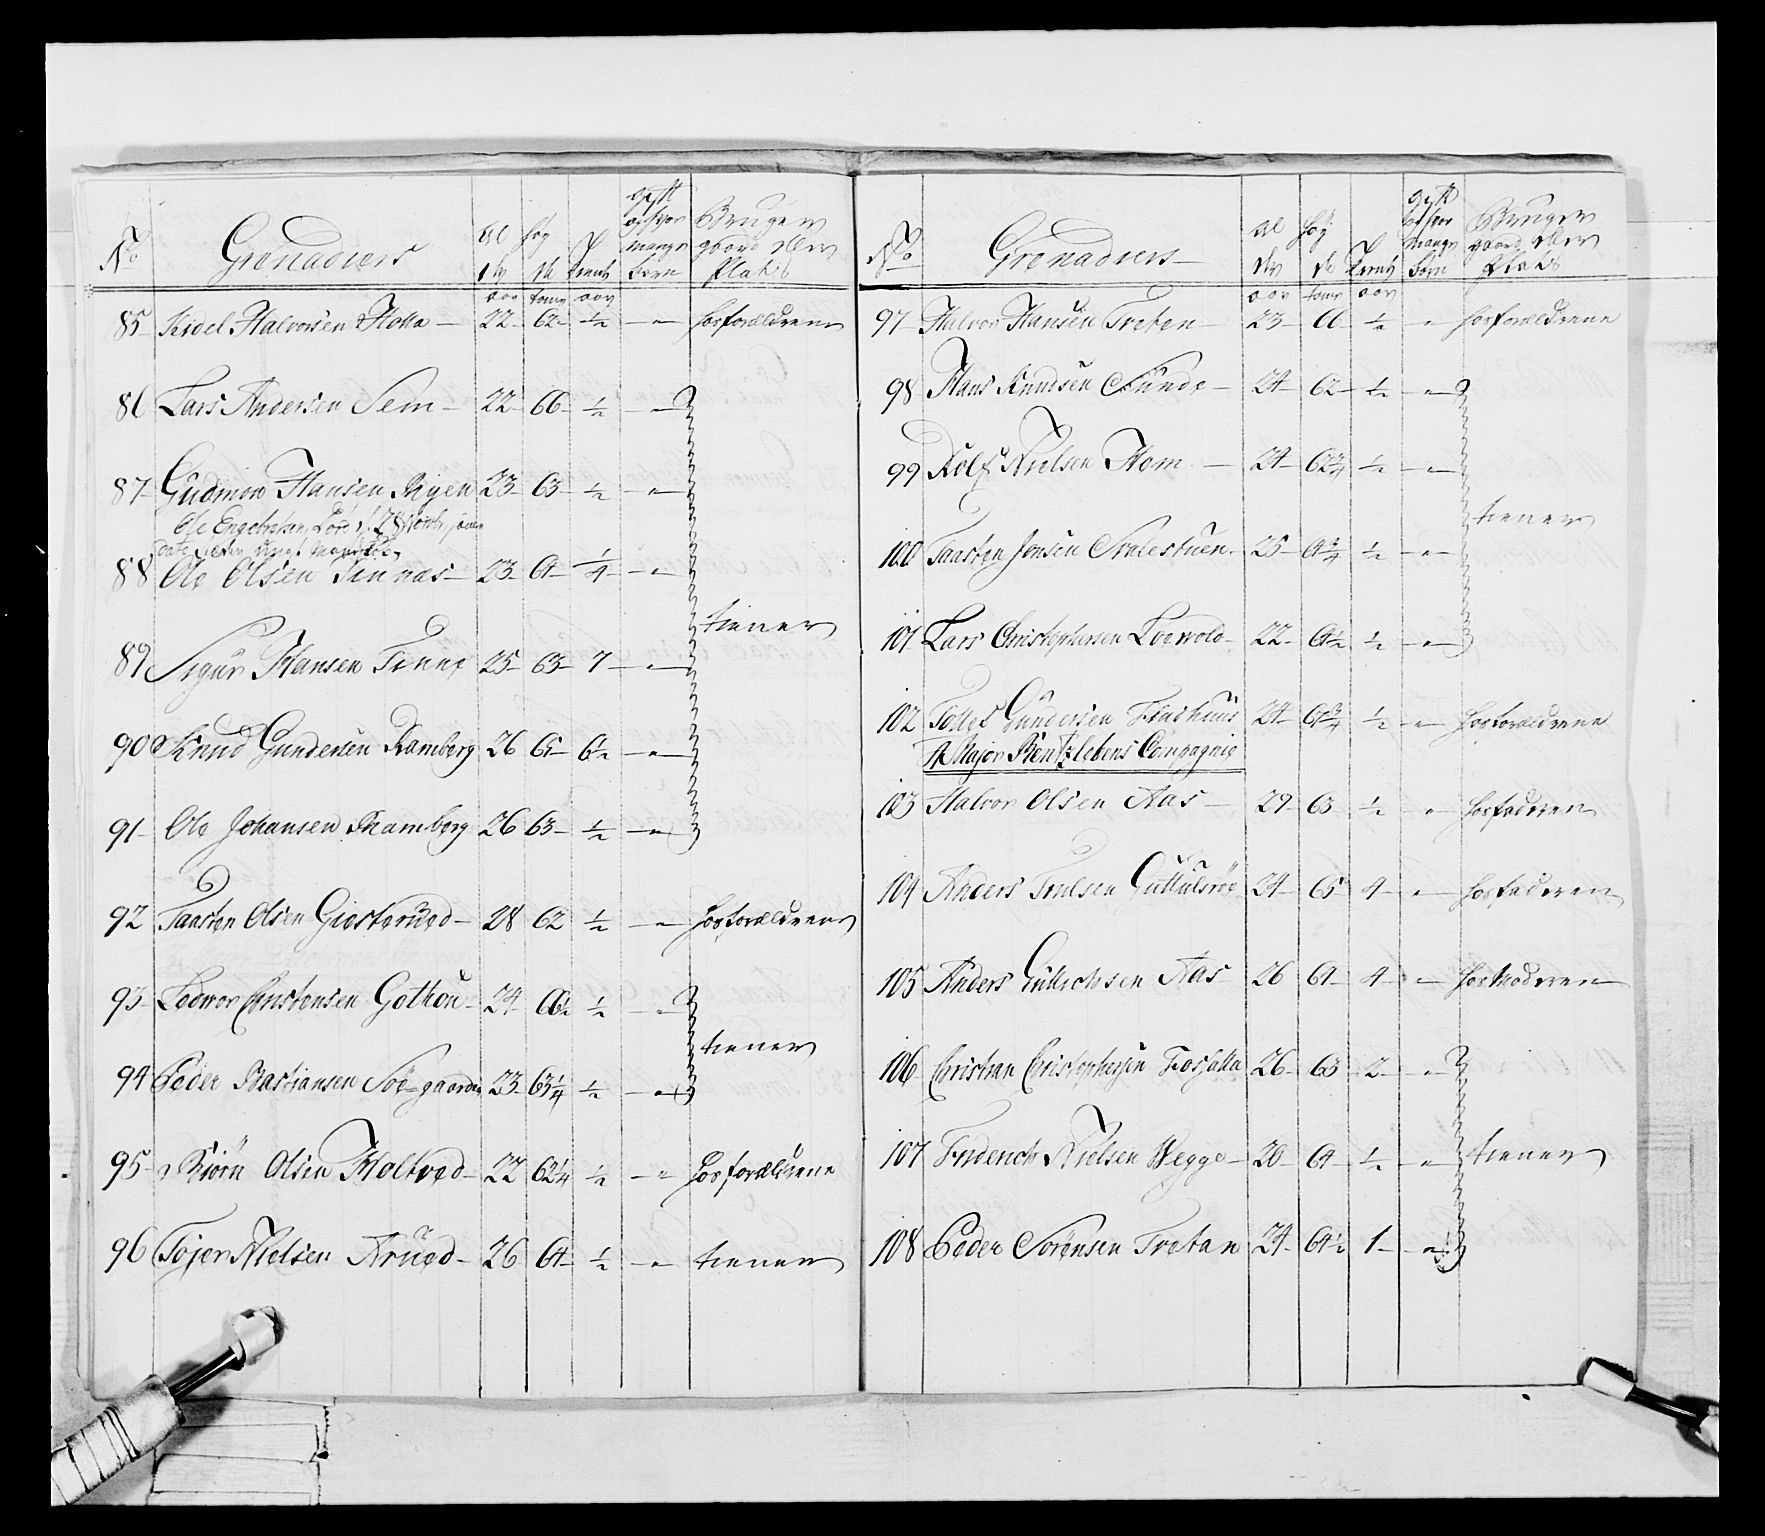 No Grenadiers Al der Høy de Tienst gift og hvor mange børn Bruger gaard eller Plads
aar tomr aar
85 Kidel Halvorsen Holla - 22 - 62 - ½ - " - hos forældrene
86 Lars Andersen Sem - 22 - 66 - ½ - "
87 Gudmon Hansen Rigen 23 - 63 - ½ - " -
Ole Engebretsen
88 Ole Olsen Tinnæs - 23 - 64 - ¼ - " -
tiener
89 Sigur Hansen Tinne 25 - 63 - 7 - " -
90 Knud Gundersen Ramberg 26 65 - 6½ - " -
91 - Ole Johansen Ramberg 26 63 - ½ - "
92 Taarsten Olsen Giesteruud - 28 62 ½ - " - hos forældrene
93 - Ledvor Christensen Gothou - 24 - 66½ ½ - "
tiener
94 Peder Bastiansen Søe-gaarden 23 - 63¼ ½ - "
95 - Biørn Olsen Holtved - 22 62¼ ½ - " hos forældrene
96 Tojer Nielsen Aruud - 26 64 - ½ - " tiener
No Grenadiers - Al der Høy de Tienst gift og hvor mange børn Bruger gaard eller Plads
aar tomr aar
97 - Halvor Hansen Treten - 23 - 66 - ½ - " hos forældrene
98 Hans Knudsen Sunde - 24 - 62 - ½ - " -
99 Rolf Nielsen Hem - 24 - 62¾ ½ - " -
tiener
100 Taarsten Jonsen Stulestuen - 25 - 64¾ ½ - " -
101 Lars Christophersen Loevold - 22 - 64½ ½ - " -
102 Tollef Gundersen Flashuus 24 - 67¾ ½ - " hos forældrene
Af Major Rentzlebens Compagnie
103 Halvor Olsen Aas - 29 - 63 ½ " hos faderen
104 Anders Truelsen Guttulsrøe 24 - 65 4 - " hos faderen
105 Anders Gullichsen Aas - 26 64 - 4 - " - hos Moderen
106 Christian Christophersen Fosfalla 26 - 63 - 2 - " -
107 Friderich Nielsen Wegge - 20 - 64 - ½ - " tiener
108 Peder Sørensen Tretan 24 - 64½ 1 - "